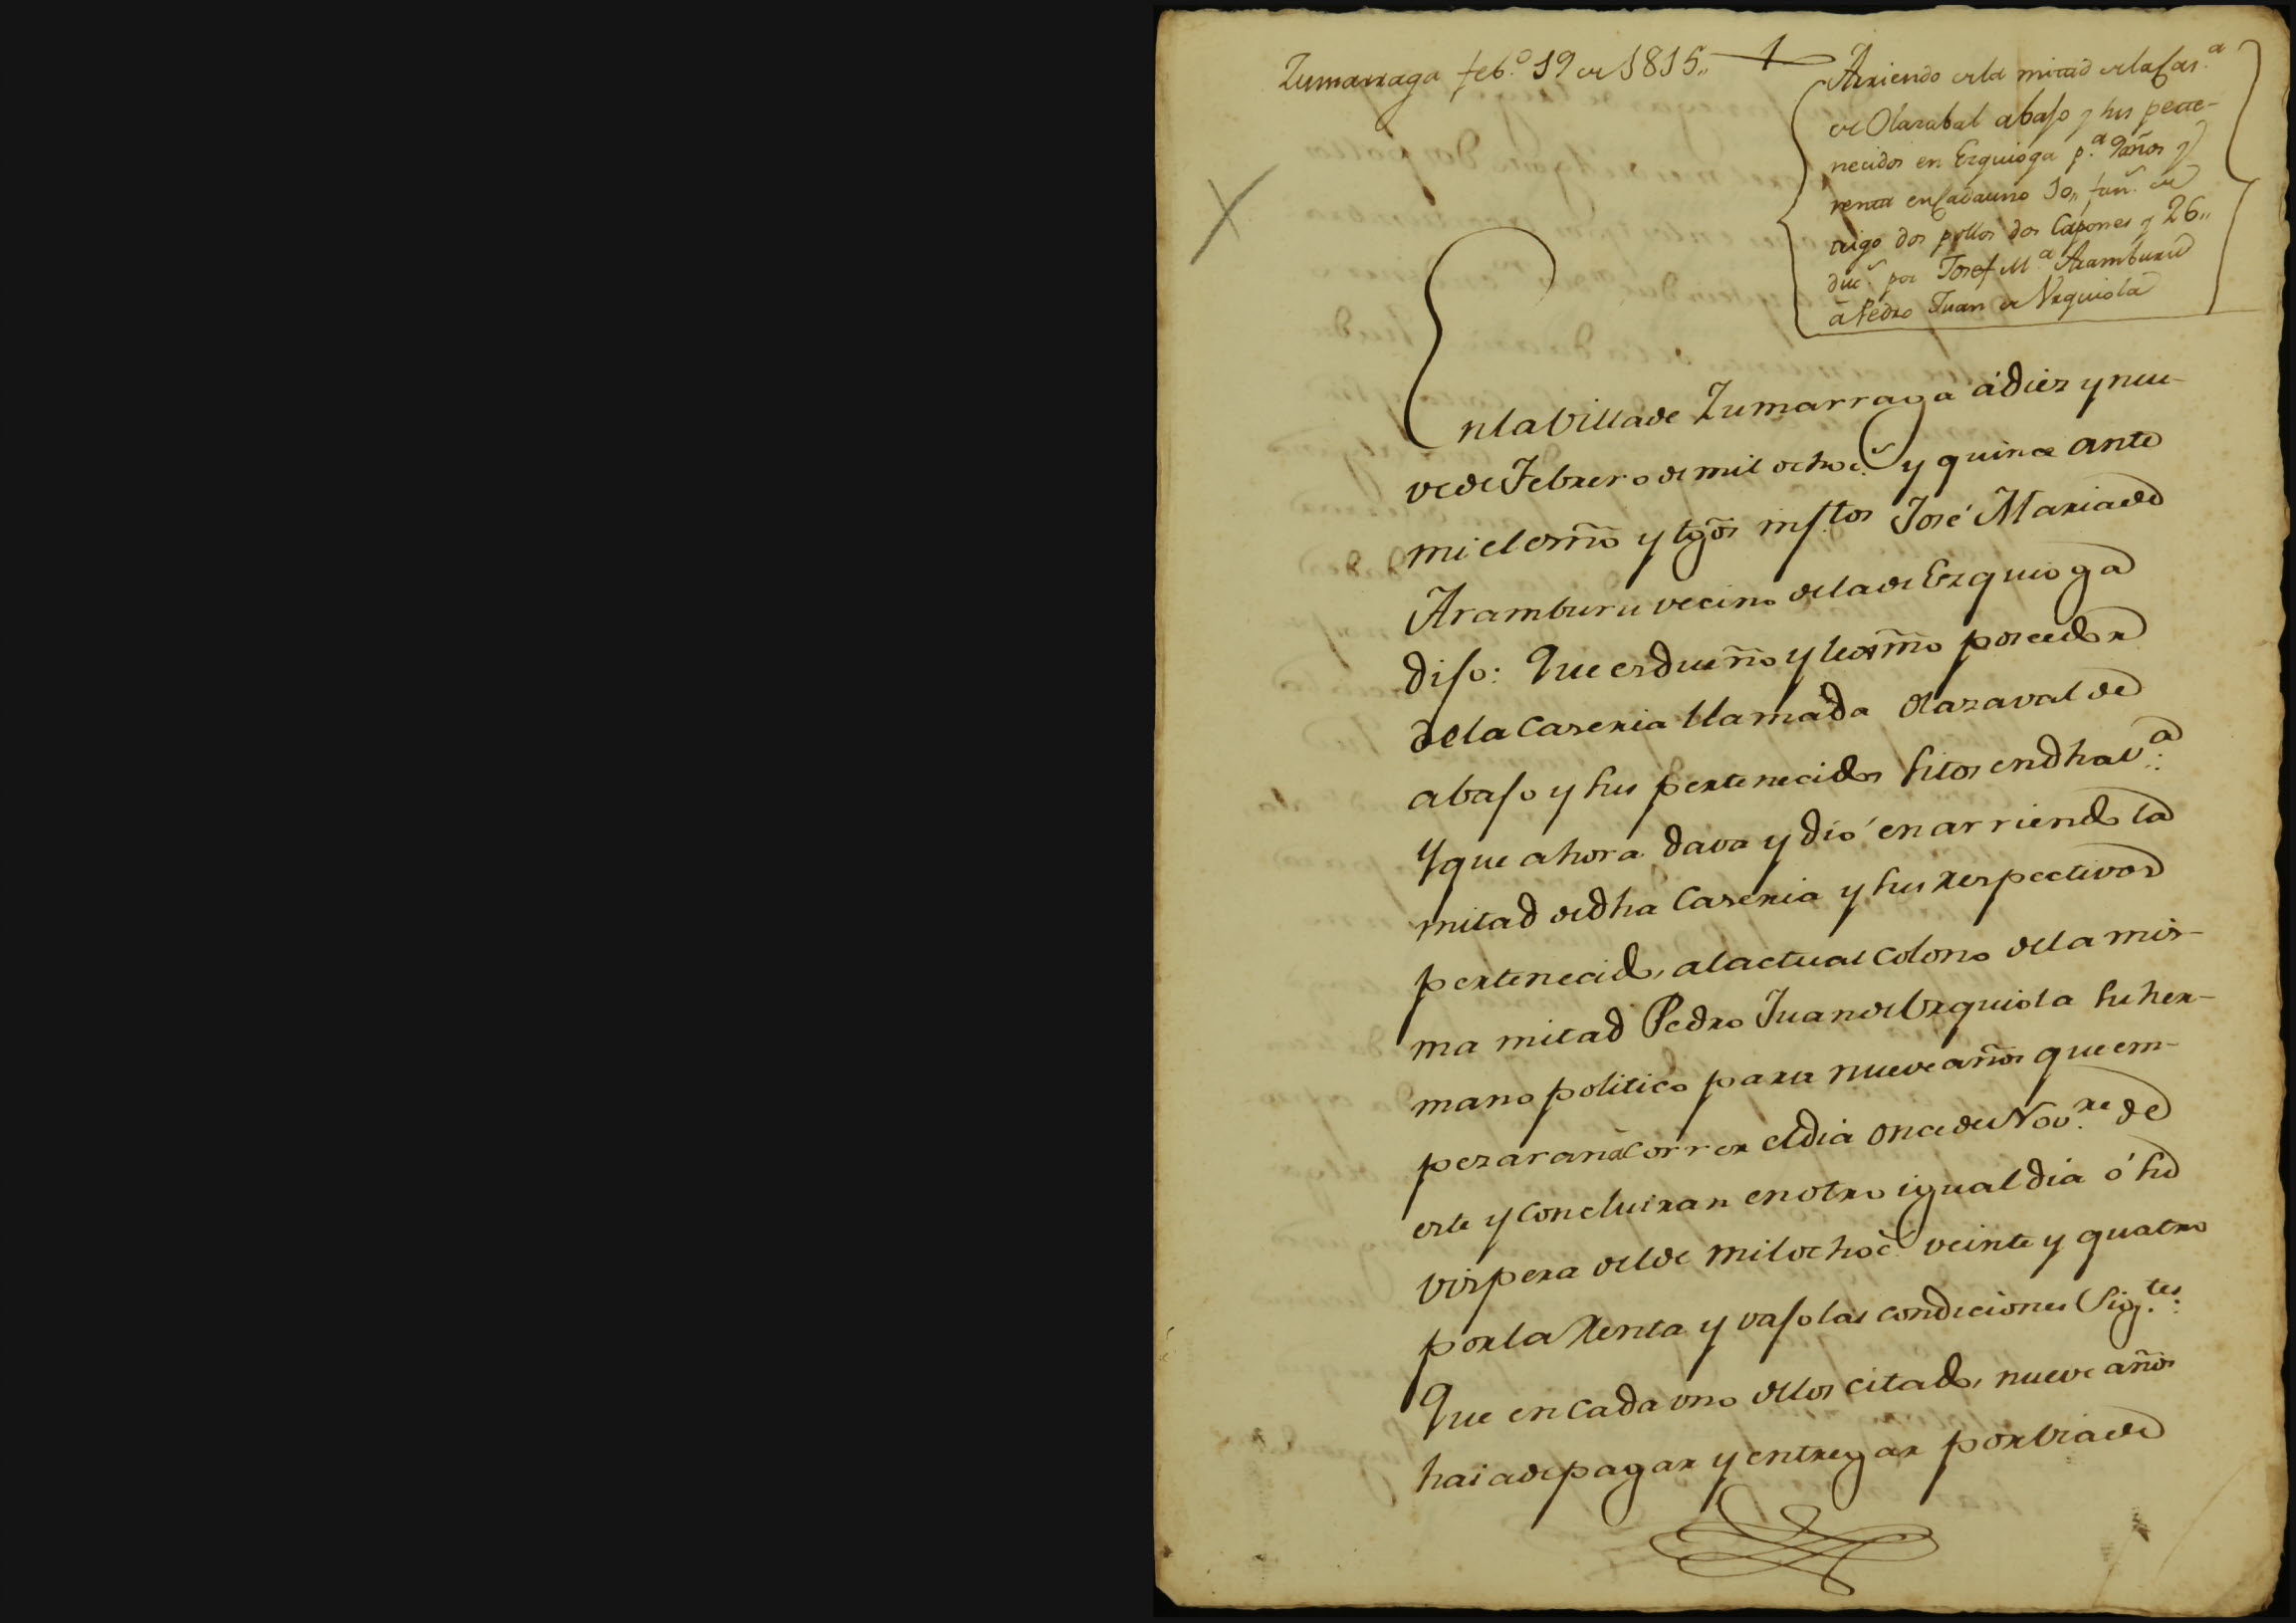 Zumarraga feb.o 19 de 1815,,
Arriendo de la mitad de la Cas.a
de Olazabal abajo y sus perte-
necidos en Ezquioga p.a 9 años y
renta en Cada uno 10,, fan.s de
trigo dos pollos dos Capones y 26,,
duc.s por Josef M.a Aramburu
â Pedro Juan de Urquiola
En la Villa de Zumarraga á diez y nue-
ve de Febrero de mil ochoc.s y quince ante
mi el essño y tgõs inf.tos José Maria de
Aramburu vecino de la de Ezquioga
dijo: Que es dueño y lexmo poseedor
de la Caseria llamada Olazaval de
abajo y sus pertenecidos sitos en dha v.a:
Y que ahora dava y dió en arriendo la
mitad de dha Caseria y sus respectivos
pertenecidos al actual colono de la mis-
ma mitad Pedro Juan de Urquiola su her-
mano politico para nueve años que em-
pezaran a Correr el dia once de Nov.re de
este y Concluiran en otro igual dia ó su
vispera del de mil ochoc.s veinte y quatro
por la Renta y vajo las condiciones Sig.tes:
Que en cada uno de los citados nueve años
haia de pagar y entregar por via de